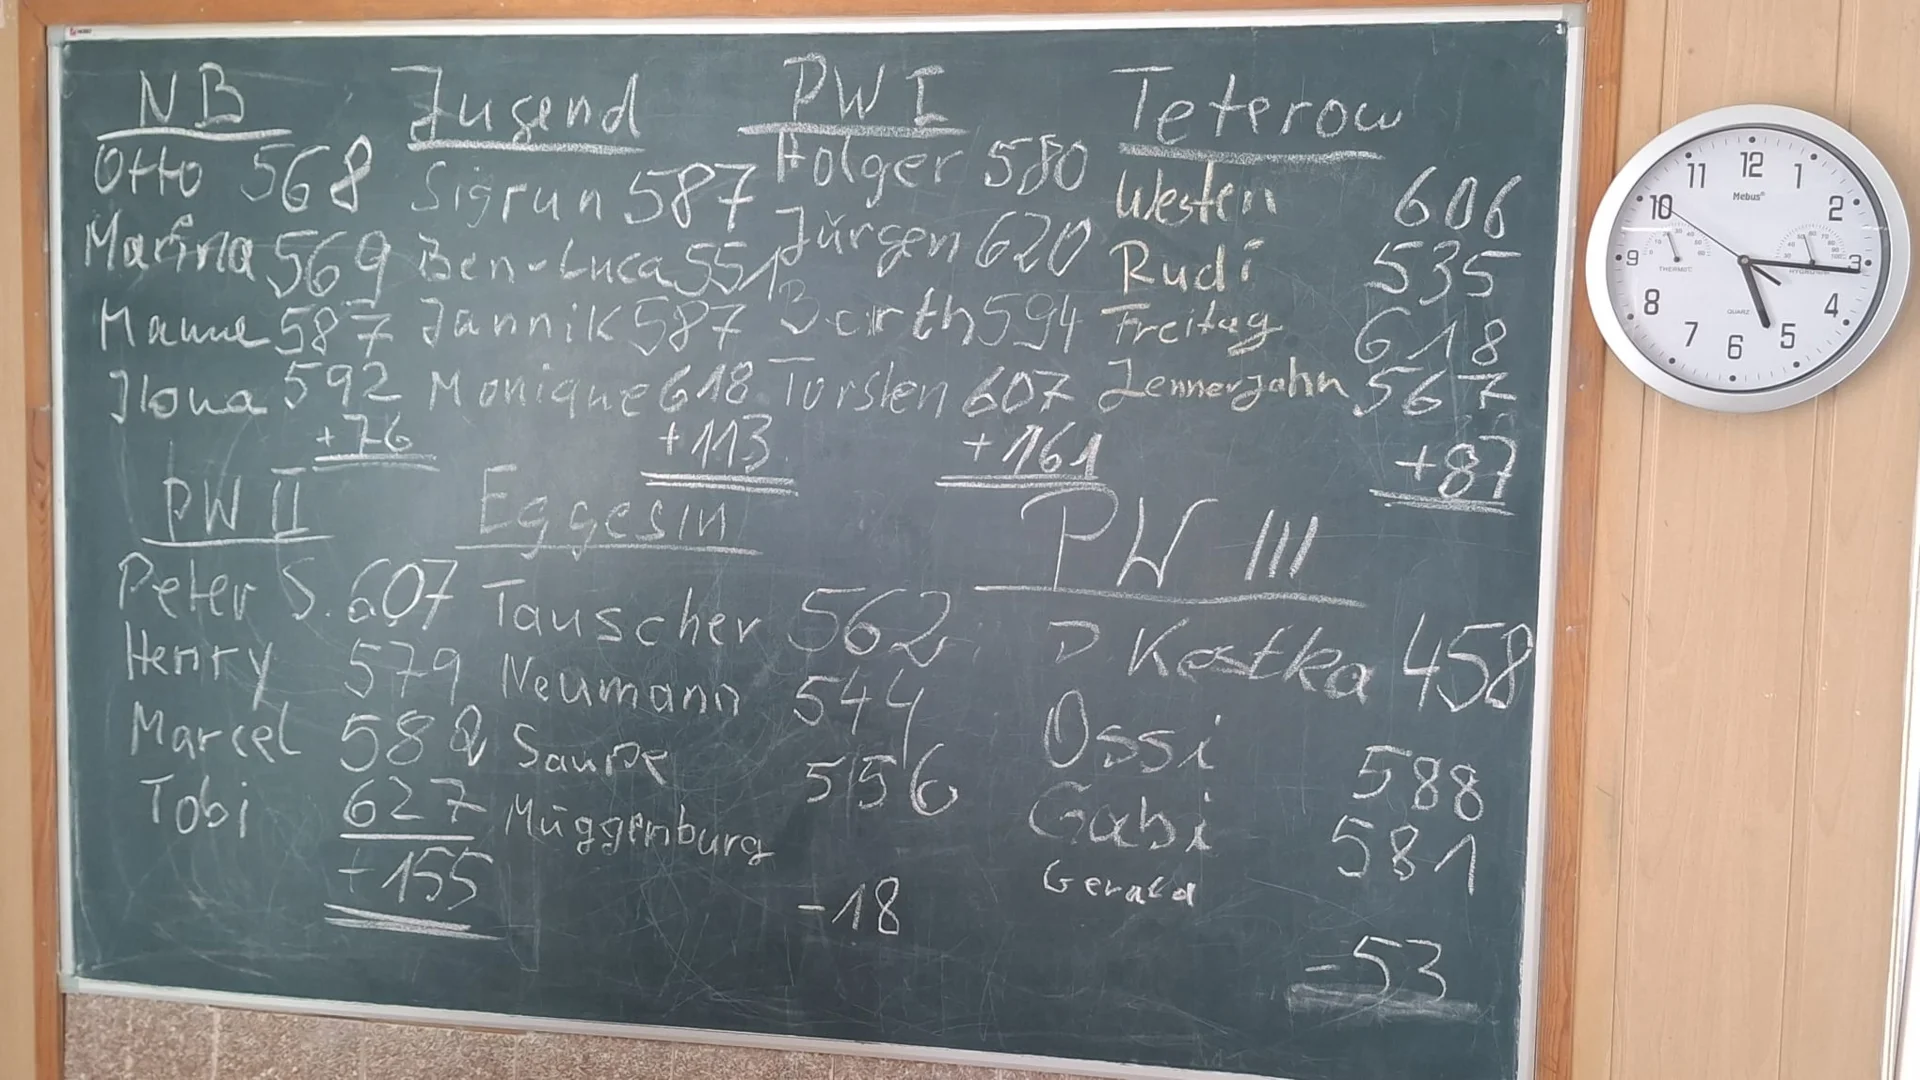 NB
Otto 568
Marina 569
Manne 587
Ilona 592
+76
Jugend
Sigrun 587
Ben-Luca 551
Jannik 587
Monique 618
+113
PW I
Holger 580
Jürgen 620
Barth 594
Torsten 607
+161
Teterow
Westen 606
Rudi 535
Freitag 618
Jennerjahn 567
+87
PW II
Peter S. 607
Henry 579
Marcel 582
Tobi 627
+155
Eggesin
Tauscher 562
Neumann 544
Saupe 556
Müggenburg
-18
PW III
D. Kostka 458
Ossi 588
Gabi 581
Gerald
-53
12
1
2
3
4
5
6
7
8
9
10
11
Mebus
THERMO °C
HYGRO
QUARZ